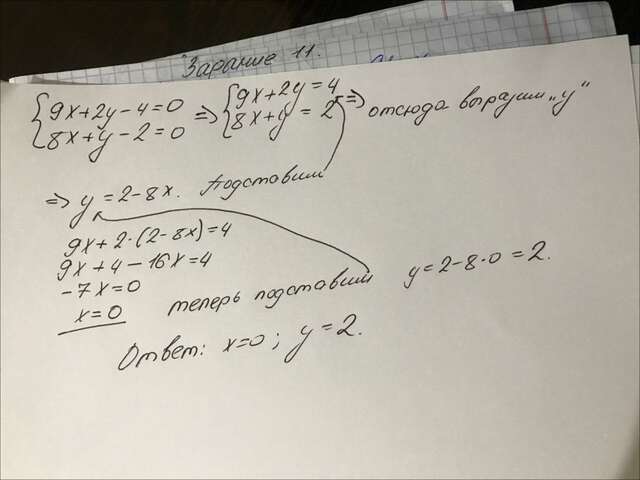 Задание 11.
{9x+2y-4=0 => {9x+2y=4
{8x+y-2=0 {8x+y=2 => отсюда выразим „y“
=> y=2-8x. Подставим
9x+2·(2-8x)=4
9x+4-16x=4
-7x=0
x=0 теперь подставим y=2-8·0=2.
Ответ: x=0; y=2.